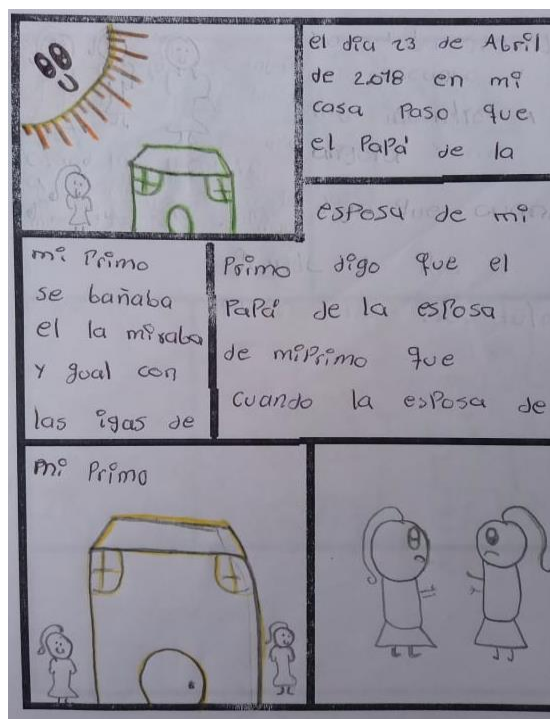 el dia 23 de Abril
de 2018 en mi
casa Paso que
el PaPá de la
esposa de mi
Primo digo que el
PaPá de la esPosa
de miPrimo que
cuando la esPosa de
mi Primo
se bañaba
el la miraba
y gual con
las igas de
mi Primo